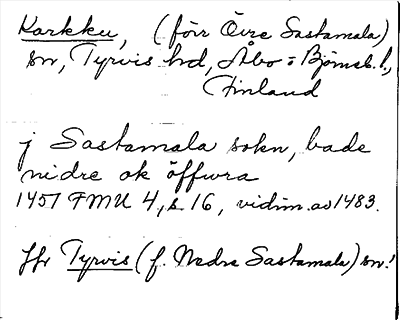 Karkku, (förr Övre Sastamala)
sn, Tyrvis hd, Åbo = Björneb. l.,
Finland
j Sastamala sokn, bade
nidre ok öffwra
1457 FMU 4, s. 16, vidim. av 1483.
Jfr Tyrvis (f. Nedre Sastamala) sn!